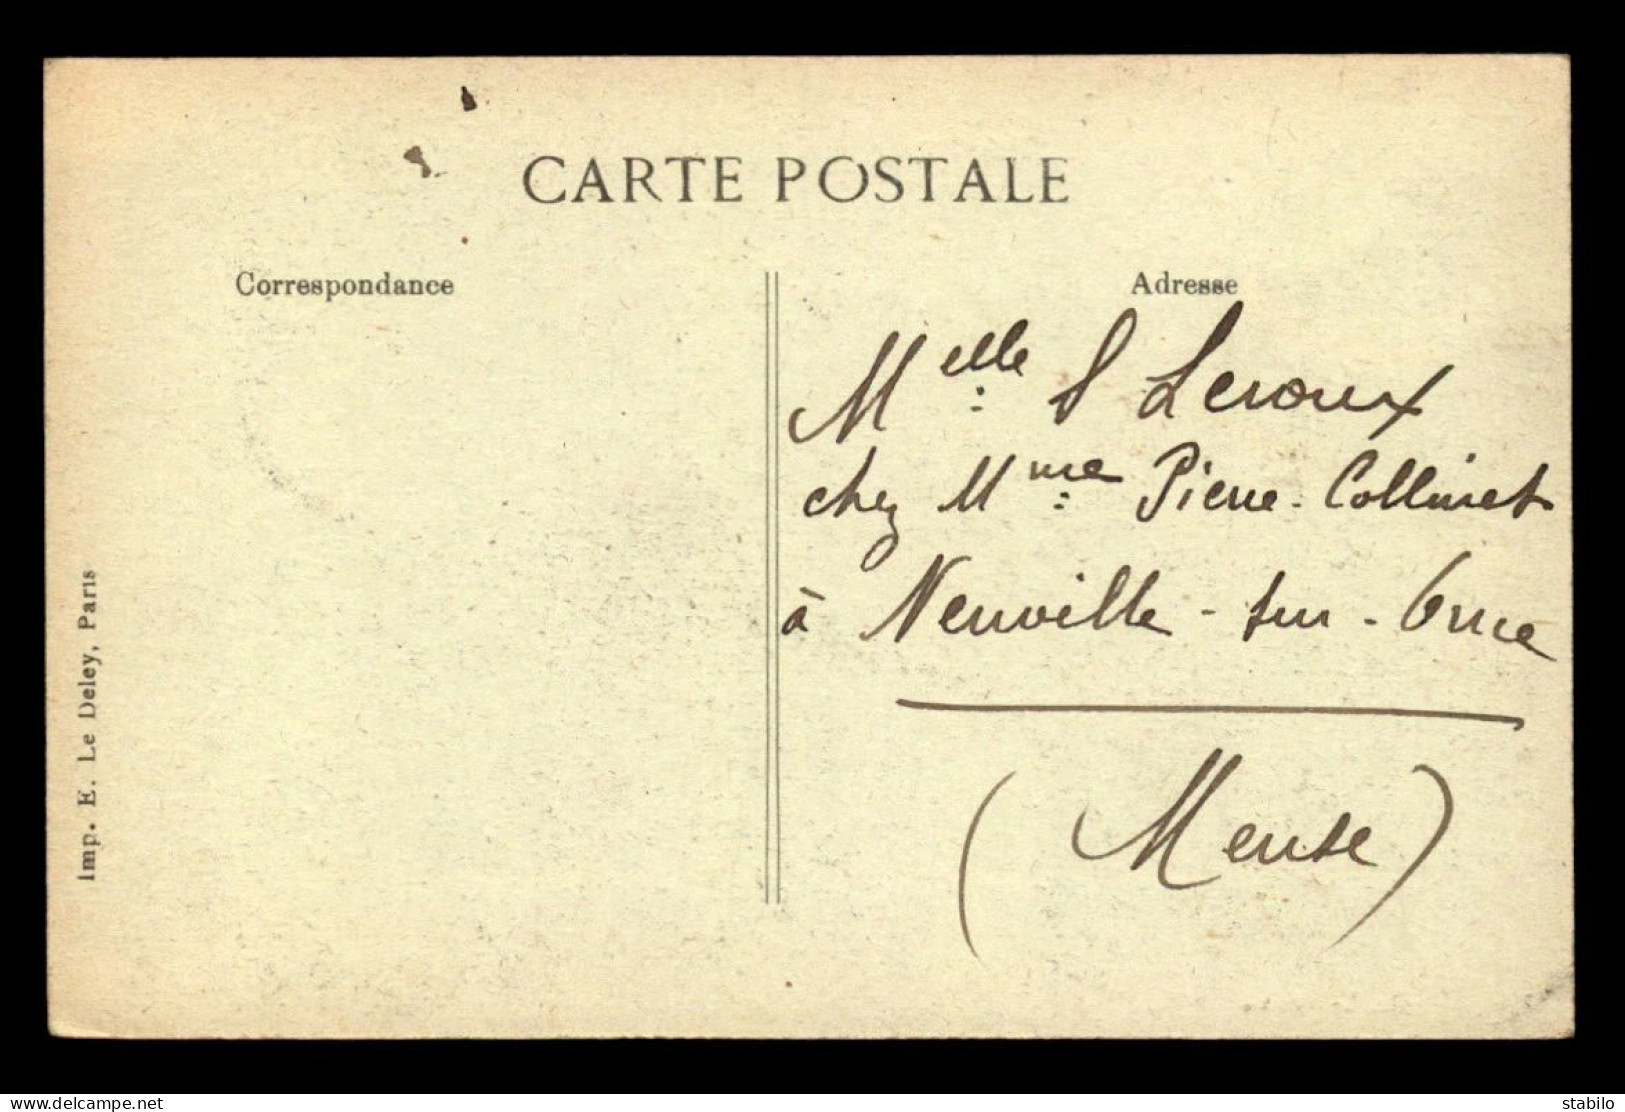 CARTE POSTALE
Correspondance
Adresse
Melle S Leroux
chez Mme Pierre-Collinet
à Neuville-sur-Orne
(Meuse)
Imp. E. Le Deley, Paris
www.delcampe.net
stabilo